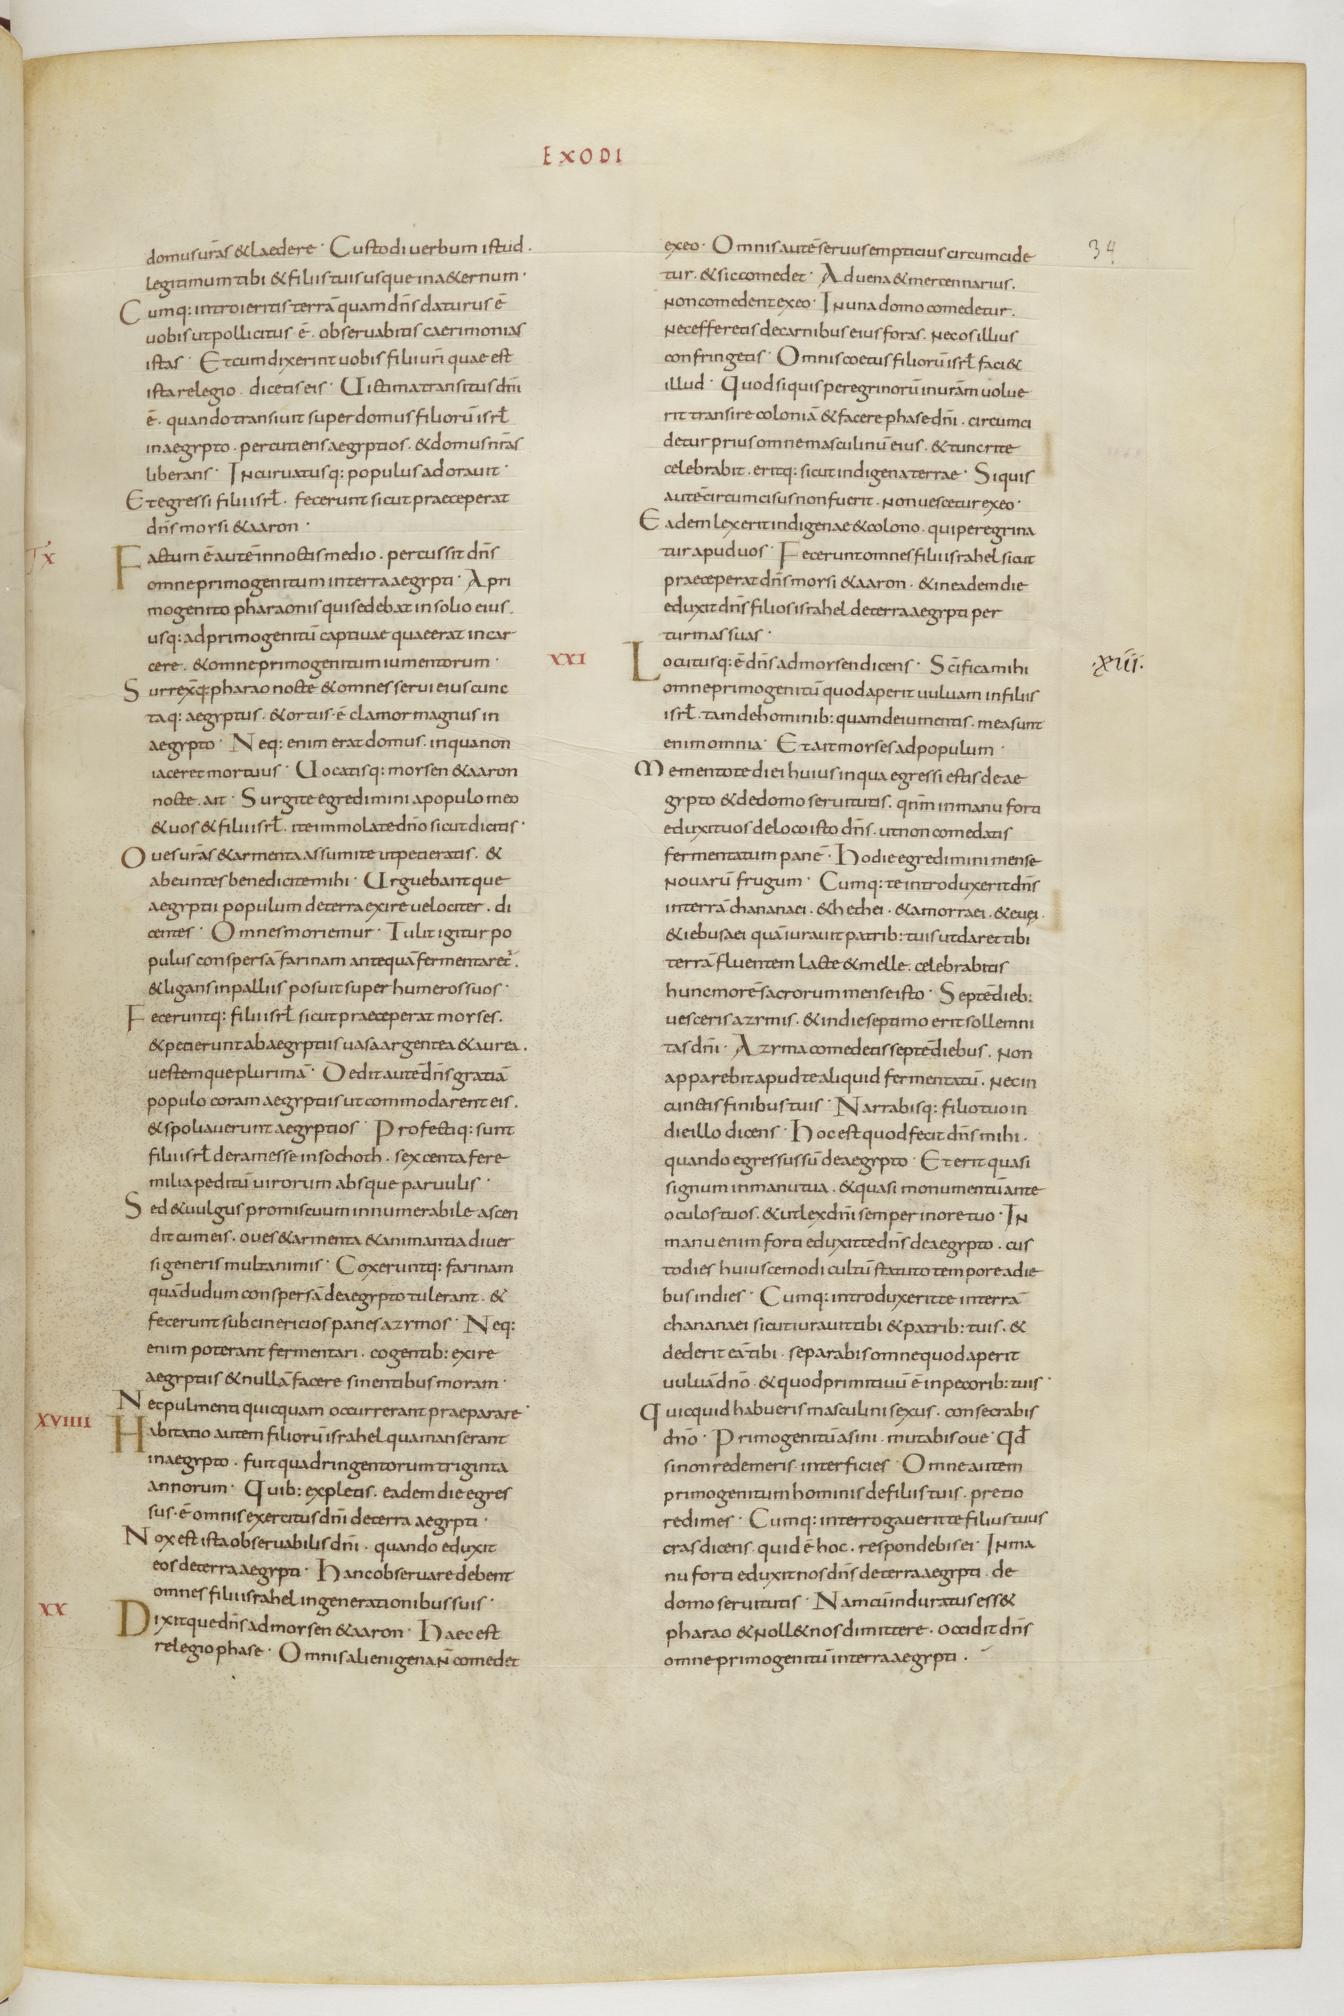 EXODI
34
domus urās & laedere · Custodi uerbum istud ·
legitimum tibi & filiis tuis usque in a&ernum ·
Cumq: introieritis terrā quam dn̄s daturus ē
uobis ut pollicitus ē · obseruabitis caerimonias
istas · Et cum dixerint uobis filii uri quae est
ista relegio · dicetis eis · Uictima transitus dn̄i
ē · quando transiuit super domus filiorū isrł
in aegypto · percutiens aegyptios · & domus nr̄as
liberans · Incuruatusq: populus adorauit ·
Et egressi filii isrł · fecerunt sicut praeceperat
dn̄s moysi & aaron ·
Factum ē autē in noctis medio · percussit dn̄s
omne primogenitum in terra aegypti · A pri
mogenito pharaonis qui sedebat in solio eius ·
usq: ad primogenitū captiuae quae erat in car
cere · & omne primogenitum iumentorum ·
Surrexq: pharao nocte & omnes serui eius cunc
taq: aegyptus · & ortus · ē clamor magnus in
aegypto · Neq: enim erat domus · in qua non
iaceret mortuus · Uocatisq: moysen & aaron
nocte · ait · Surgite egredimini a populo meo
& uos & filii isrł · ite immolate dn̄o sicut dicitis ·
Oues urās & armenta assumite ut petieratis · &
abeuntes benedicite mihi · Urguebantque
aegyptii populum de terra exire uelociter · di
centes · Omnes moriemur · Tulit igitur po
pulus conspersā farinam antequā fermentaret ·
& ligans in palliis posuit super humeros suos ·
Feceruntq: filii isrł sicut praeceperat moyses ·
& petierunt ab aegyptiis uasa argentea & aurea ·
uestemque plurimā · Dedit autē dn̄s gratiā
populo coram aegyptiis ut commodarent eis ·
& spoliauerunt aegyptios · Profectiq: sunt
filii isrł de ramesse in sochoth · sexcenta fere
milia peditū uirorum absque paruulis ·
Sed & uulgus promiscuum innumerabile ascen
dit cum eis · oues & armenta & animantia diuer
si generis multa nimis · Coxeruntq: farinam
quā dudum conspersā de aegypto tulerant · &
fecerunt subcinericios panes azymos · Neq:
enim poterant fermentari · cogentib: exire
aegyptiis & nullā facere sinentibus moram ·
Nec pulmenti quicquam occurrerant praeparare ·
XVIIII
Habitatio autem filiorū israhel qua manserant
in aegypto · fuit quadringentorum triginta
annorum · Quib: expletis · eadem die egres
sus · ē omnis exercitus dn̄i de terra aegypti ·
Nox est ista obseruabilis dn̄i · quando eduxit
eos de terra aegypti · Hanc obseruare debent
omnes filii israhel in generationibus suis ·
XX
Dixitque dn̄s ad moysen & aaron · Haec est
relegio phase · Omnis alienigena n̄ comedet
ex eo · Omnis autē seruus empticius circumcide
tur · & sic comedet · Aduena & mercennarius ·
non comedent ex eo · In una domo comedetur ·
nec efferetis de carnibus eius foras · nec os illius
confringetis · Omnis coetus filiorū isrł faci&
illud · Quod si quis peregrinorū in urām uolue
rit transire coloniā & facere phase dn̄i · circumci
detur prius omne masculinū eius · & tunc rite
celebrabit · eritq: sicut indigena terrae · Si quis
autē circumcisus non fuerit · non uescetur ex eo ·
Eadem lex erit indigenae & colono · qui peregrina
tur apud uos · Fecerunt omnes filii israhel sicut
praeceperat dn̄s moysi & aaron · & in eadem die
eduxit dn̄s filios israhel de terra aegypti per
turmas suas ·
XXI
Locutusq: ē dn̄s ad moysen dicens · Sc̄ifica mihi
·xiii·
omne primogenitū quod aperit uuluam in filiis
isrł · tam de hominib: quam de iumentis · mea sunt
enim omnia · Et ait moyses ad populum ·
Mementote diei huius in qua egressi estis de ae
gypto & de domo seruitutis · qn̄m in manu forti
eduxit uos de loco isto dn̄s · ut non comedatis
fermentatum panē · Hodie egredimini mense
nouarū frugum · Cumq: te introduxerit dn̄s
in terrā chananaei · & hethei · & amorraei · & euei ·
& iebusaei quā iurauit patrib: tuis ut daret tibi
terrā fluentem lacte & melle · celebrabitis
hunc morē sacrorum mense isto · Septē dieb:
uesceris azymis · & in die septimo erit sollemni
tas dn̄i · Azyma comedetis septē diebus · non
apparebit apud te aliquid fermentatū · nec in
cunctis finibus tuis · Narrabisq: filio tuo in
die illo dicens · Hoc est quod fecit dn̄s mihi ·
quando egressus sū de aegypto · Et erit quasi
signum in manu tua · & quasi monumentū ante
oculos tuos · & ut lex dn̄i semper in ore tuo · In
manu enim forti eduxit te dn̄s de aegypto · cus
todies huiuscemodi cultū statuto tempore a die
bus in dies · Cumq: introduxerit te in terrā
chananaei sicut iurauit tibi & patrib: tuis · &
dederit eā tibi · separabis omne quod aperit
uuluā dn̄o · & quod primitiuū ē in pecorib: tuis ·
Quicquid habueris masculini sexus · consecrabis
dn̄o · Primogenitū asini · mutabis oue · Qđ
si non redemeris · interficies · Omne autem
primogenitum hominis de filiis tuis · pretio
redimes · Cumq: interrogauerit te filius tuus
cras dicens · quid ē hoc · respondebis ei · In ma
nu forti eduxit nos dn̄s de terra aegypti · de
domo seruitutis · Nam cū induratus ess&
pharao & noll& nos dimittere · occidit dn̄s
omne primogenitū in terra aegypti ·